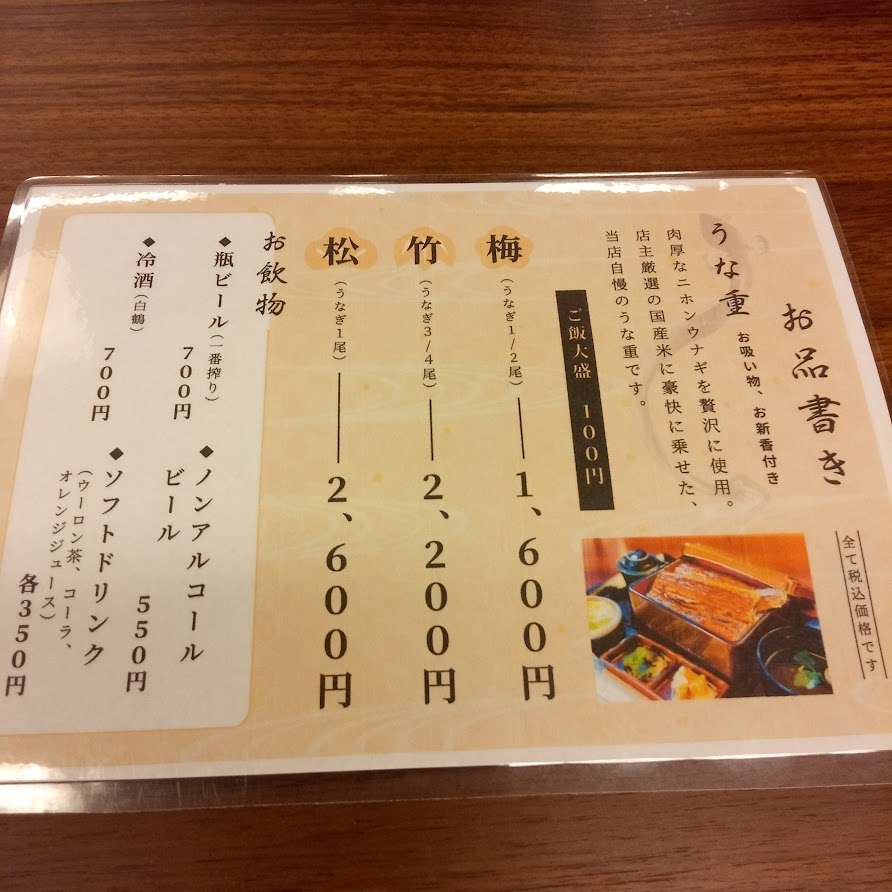 お品書き
全て税込価格です
うな重 お吸い物、お新香付き
肉厚なニホンウナギを贅沢に使用。
店主厳選の国産米に豪快に乗せた、
当店自慢のうな重です。
ご飯大盛 100円
梅(うなぎ1/2尾)1、600円
竹(うなぎ3/4尾)2、200円
松(うなぎ1尾)2、600円
お飲物
◆瓶ビール(一番搾り)
700円
◆冷酒(白鶴)
700円
◆ノンアルコール
ビール
550円
◆ソフトドリンク
(ウーロン茶、コーラ、
オレンジジュース)
各350円